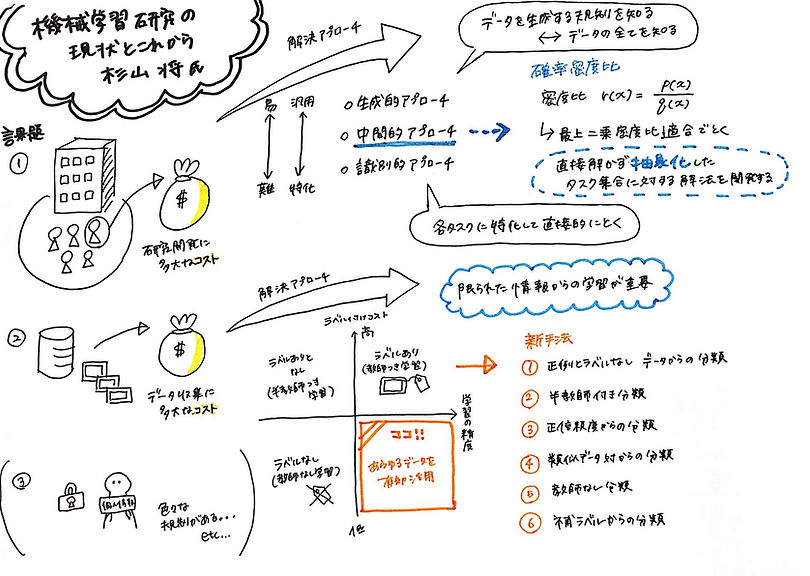 機械学習研究の
現状とこれから
杉山 将 氏
課題
①
$
研究開発に
多大なコスト
解決アプローチ
易 汎用
難 特化
○ 生成的アプローチ
○ 中間的アプローチ
○ 識別的アプローチ
データを生成する規則を知る
↔ データの全てを知る
確率密度比
密度比 r(x) = p(x) / q(x)
↳ 最小二乗密度比適合でとく
直接解かず抽象化した
タスク集合に対する解法を開発する
各タスクに特化して直接的にとく
②
$
データ収集に
多大なコスト
解決アプローチ
限られた情報からの学習が重要
ラベル付けコスト
高
低
学習の精度
ラベルありと
なし
(半教師つき
学習)
ラベルあり
(教師つき学習)
ラベルなし
(教師なし学習)
ココ!!
あらゆるデータを
有効活用
新手法
① 正例とラベルなし データからの分類
② 半教師付き分類
③ 正信頼度からの分類
④ 類似データ対からの分類
⑤ 教師なし分類
⑥ 補ラベルからの分類
③
個人情報
色々な
規制がある...
etc...